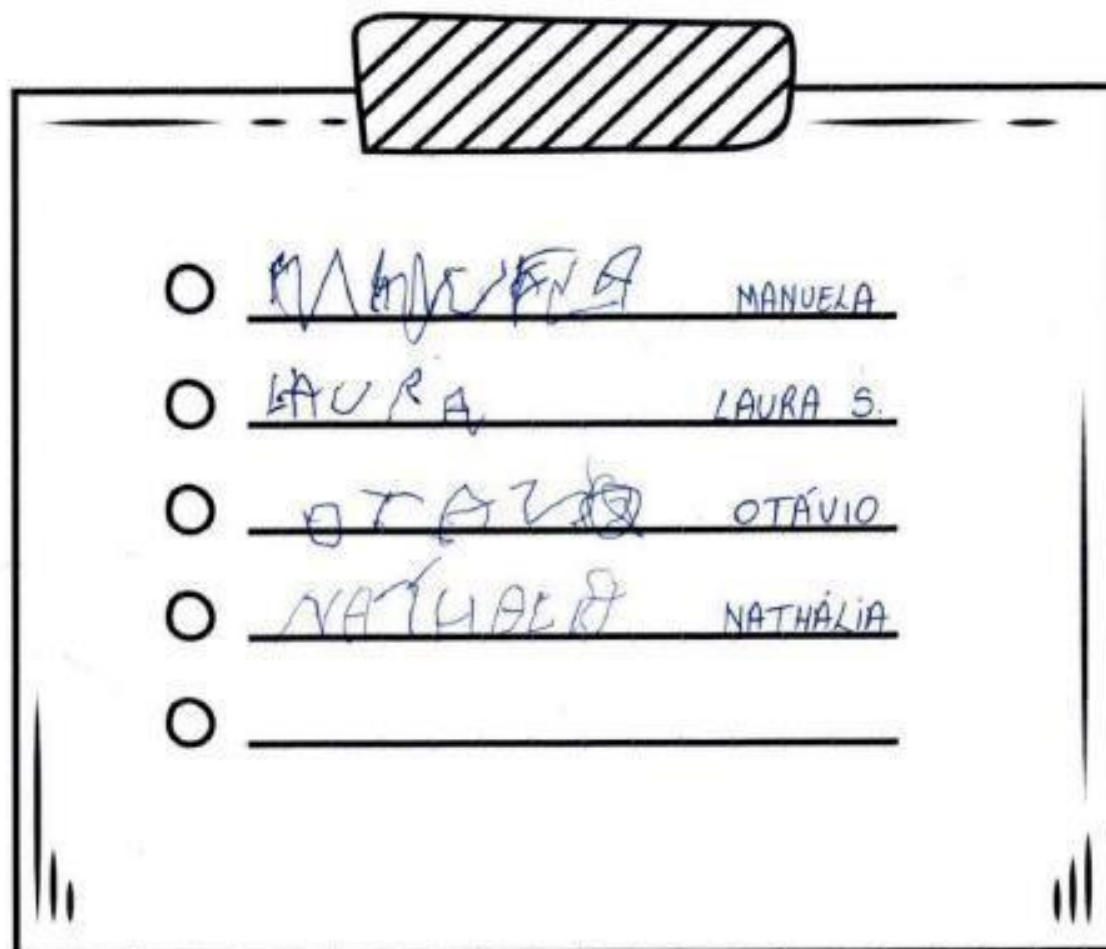 MANUELA MANUELA
LAURA LAURA S.
OTAVIO OTÁVIO
NATHALIA NATHÁLIA